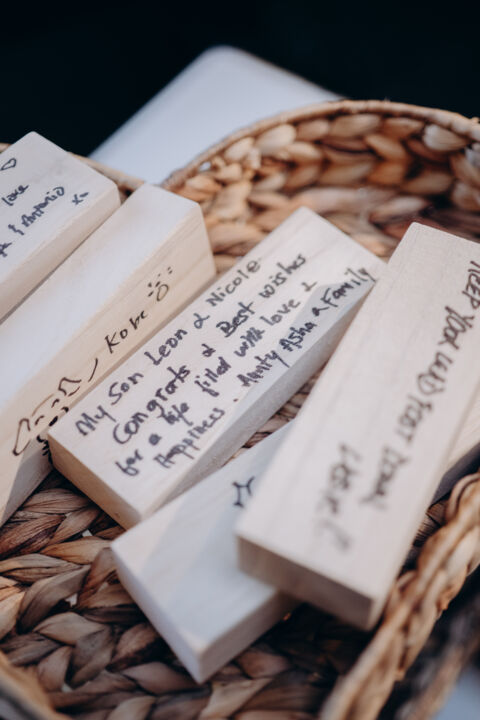 love
& Antonio x
Kobe
My Son Leon & Nicole
Congrats & Best wishes
for a life filled with love &
Happiness. Aunty Asha & Family
KEEP YOUR
LOVE!